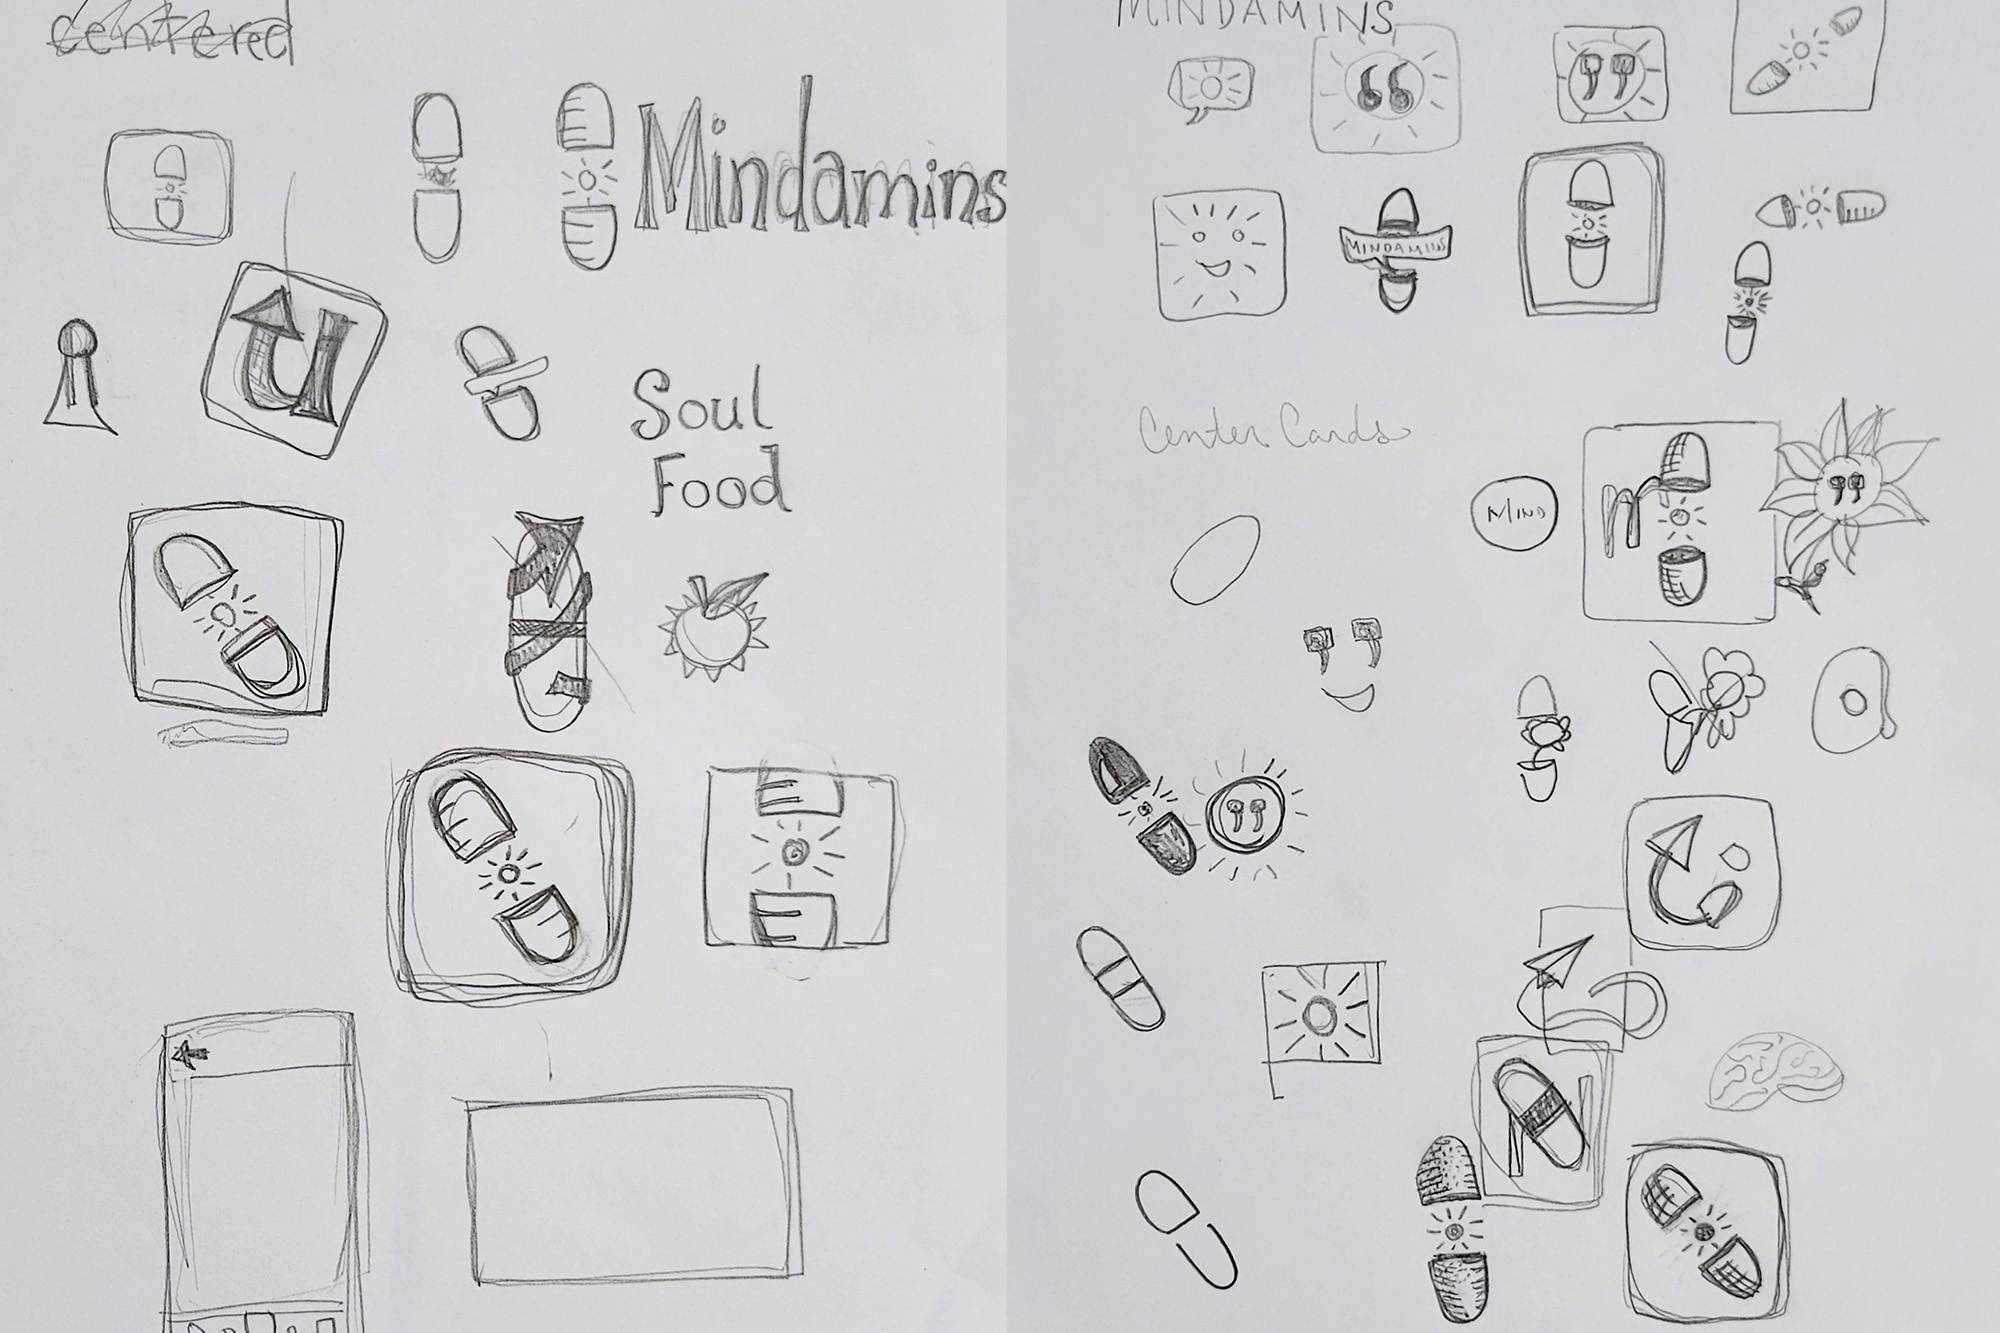 centered
Mindamins
Soul
Food
MINDAMINS
MINDAMINS
Center Cards
MIND
m